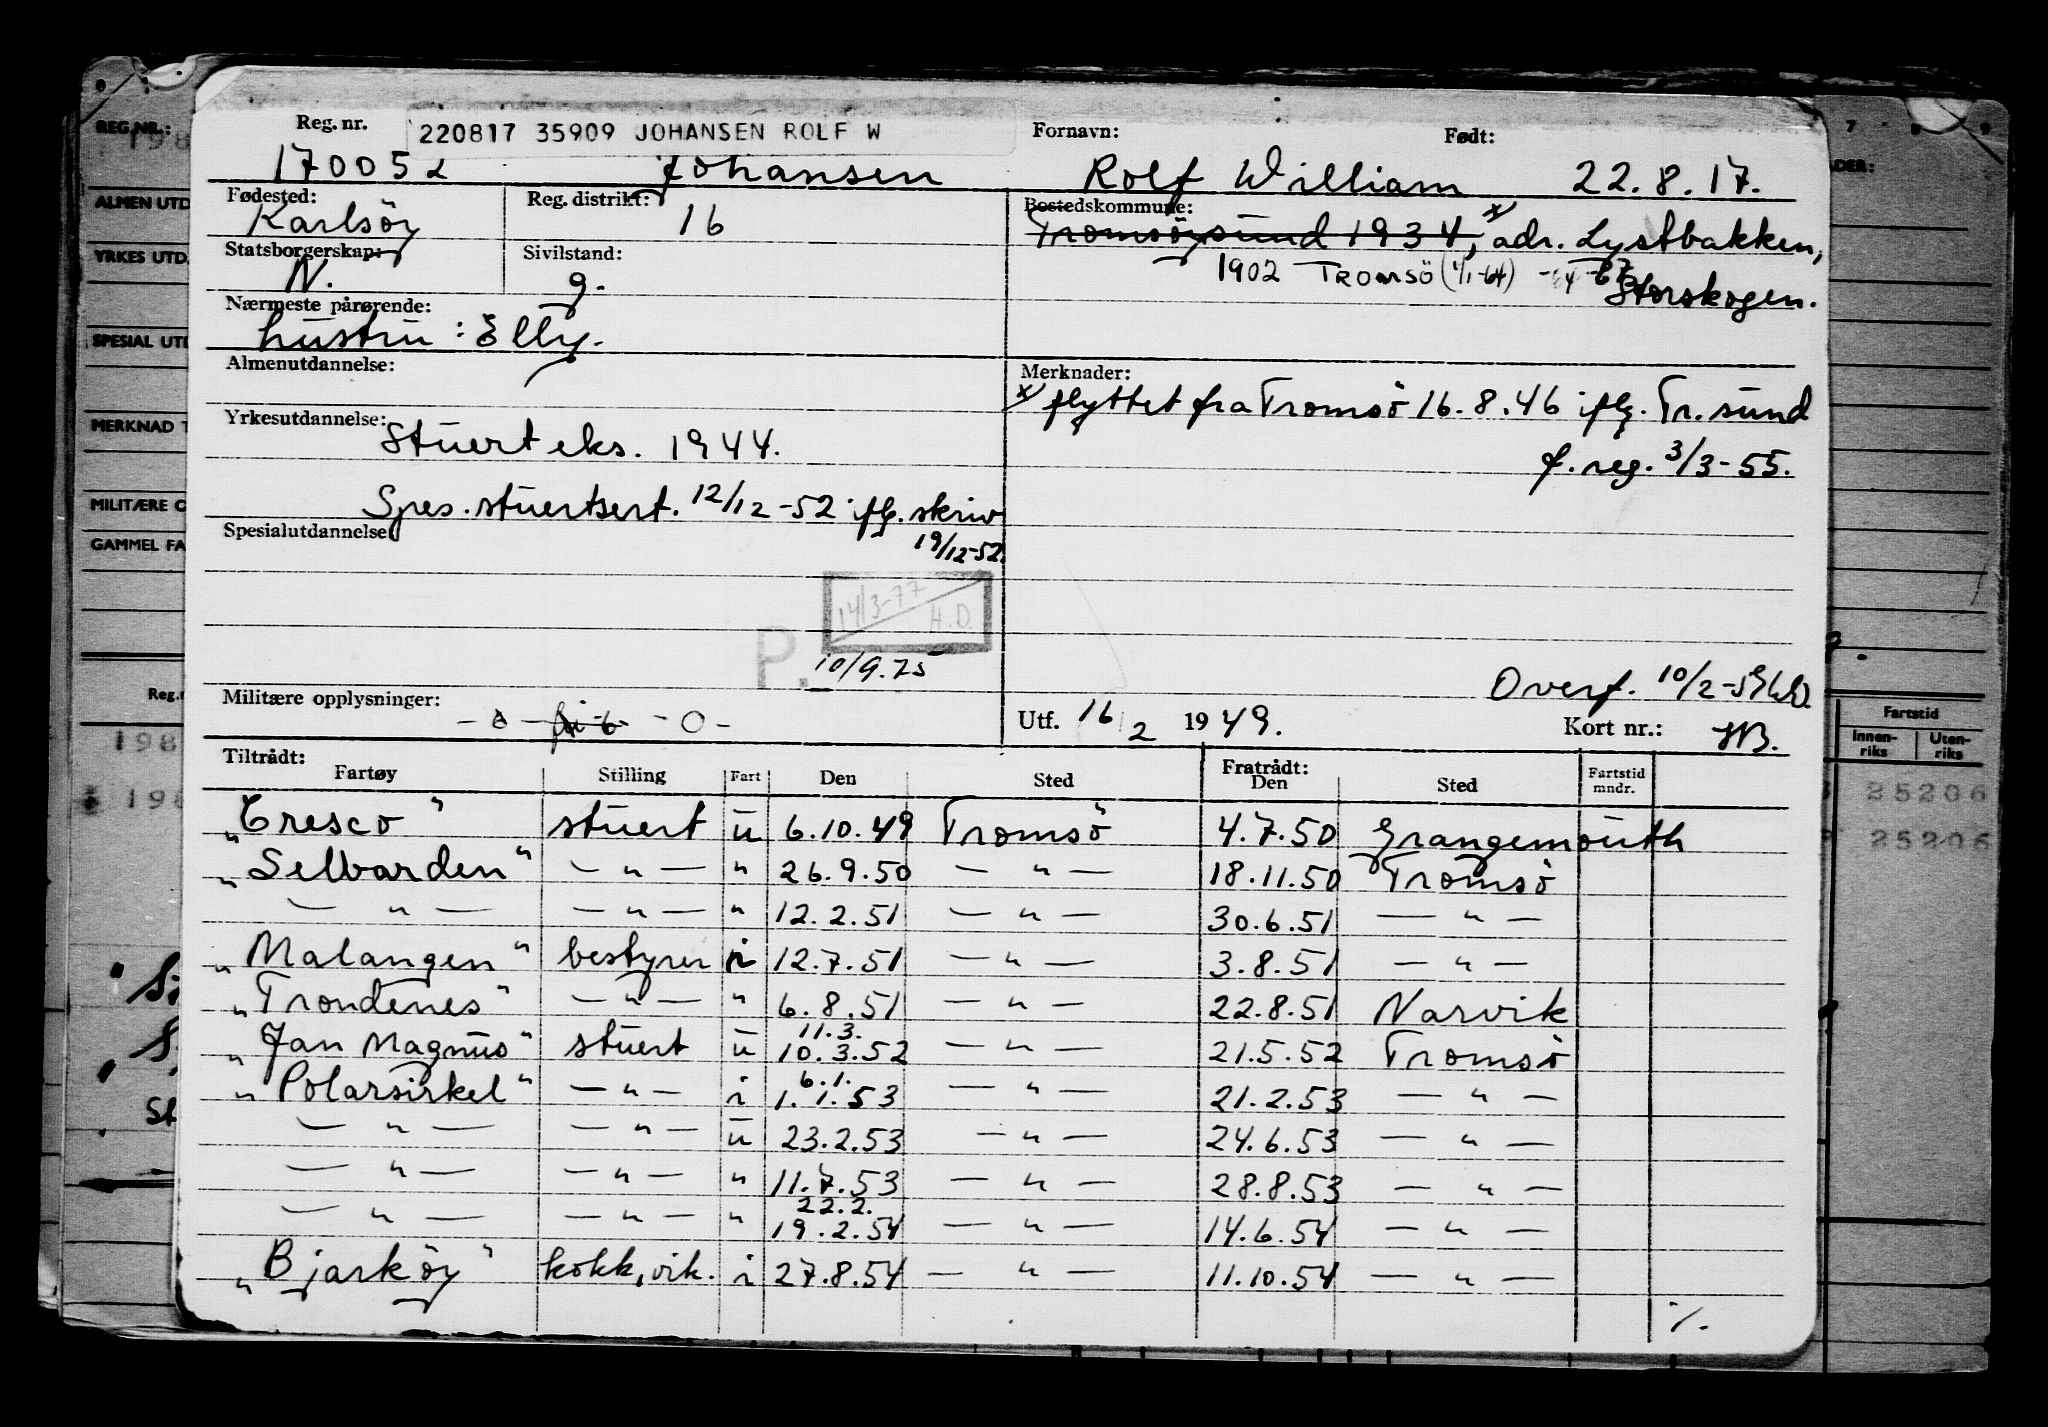 Reg. nr. 220817 35909 JOHANSEN ROLF W Fornavn: Født:
170052 Johansen Rolf William 22.8.17.
Fødested: Reg. distrikt: Bostedskommune:
Karlsöy 16 Tromsöysund 1934, x/ adr. Lystbakken,
Statsborgerskap: Sivilstand: 1902 TROMSÖ (4/1-64)
N. g. Storskogen.
Nærmeste pårørende:
hustru: Elly.
Almenutdannelse: Merknader:
x/ flyttet fra Tromsö 16.8.46 iflg. Tr.sund
Yrkesutdannelse:
Stuerteks. 1944. f. reg. 3/3-55.
Spes. stuertsert. 12/12-52 iflg. skriv
Spesialutdannelse
19/12-52.
14/3-77 H.D.
P. 10/9.75
Overf. 10/2-59
Militære opplysninger: Utf. 16/2 1949. Kort nr.:
Tiltrådt: Fratrådt:
Fartøy Stilling Fart Den Sted Den Sted Fartstid mndr.
"Cresco" stuert u 6.10.49 Tromsö 4.7.50 Grangemouth
"Selbarden" — " — " 26.9.50 — " — 18.11.50 Tromsö
— " — — " — " 12.2.51 — " — 30.6.51 — " —
"Malangen" bestyrer i 12.7.51 — " — 3.8.51 — " —
"Trondenes" — " — " 6.8.51 — " — 22.8.51 Narvik
11.3.
"Jan Magnus" stuert u 10.3.52 — " — 21.5.52 Tromsö
6.1.
"Polarsirkel" — " — i 1.1.53 — " — 21.2.53 — " —
— " — — " — u 23.2.53 — " — 24.6.53 — " —
— " — — " — " 11.7.53 — " — 28.8.53 — " —
22.2.
— " — — " — " 19.2.54 — " — 14.6.54 — " —
"Bjarköy" kokk, vik. i 27.8.54 — " — 11.10.54 — " —
·/.
REG.NR.:
198
ALMEN UTD
YRKES UTD
SPESIAL UTD
MERKNAD T
MILITÆRE O
GAMMEL FA
Reg.n
198
198
7 8 9
ADER:
Fartstid
Innen-riks Uten-riks
25206
25206